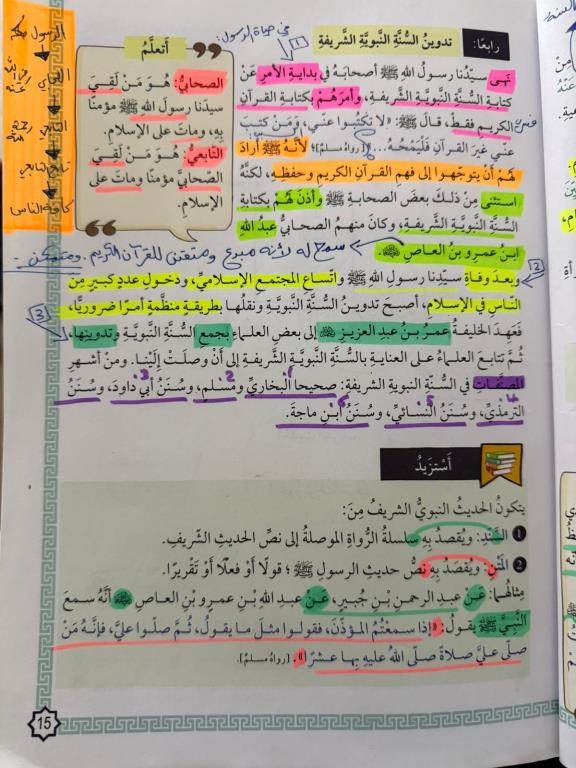 رابعًا: تدوينُ السُّنَّةِ النَّبويَّةِ الشَّريفةِ
في حياة الرسول:
1
نَهى سيّدُنا رسولُ اللهِ ﷺ أصحابَهُ في بدايةِ الأمرِ عَنْ
كتابةِ السُّنَّةِ النَّبويَّةِ الشَّريفةِ، وأمرَهُمْ بكتابةِ القرآنِ
الكريمِ فقطْ، قالَ ﷺ: «لا تكتُبوا عنّي، ومَنْ كتبَ
عنّي غيرَ القرآنِ فَلْيَمْحُهُ...» [رواهُ مسلمٌ]؛ لأنَّهُ ﷺ أرادَ
لَهُمْ أن يتوجّهوا إلى فهمِ القرآنِ الكريمِ وحفظِهِ، لكنَّهُ
استثنى مِنْ ذلكَ بعضَ الصحابةِ ﷺ وأذنَ لَهُمْ بكتابةِ
السُّنَّةِ النَّبويَّةِ الشَّريفةِ، وكانَ منهمُ الصحابيُّ عبدُ اللهِ
ابنُ عمرِو بنُ العاصِ
سمح له لأنه مبدع ومتقن للقرآن الكريم. ومتمكن
2
وبعدَ وفاةِ سيّدِنا رسولِ اللهِ ﷺ واتّساعِ المجتمعِ الإسلاميِّ، ودخولِ عددٍ كبيرٍ مِنَ
الناسِ في الإسلامِ، أصبحَ تدوينُ السُّنَّةِ النَّبويَّةِ ونقلُها بطريقةٍ منظَّمةٍ أمرًا ضروريًّا،
3
فَعَهِدَ الخليفةُ عمرُ بنُ عبدِ العزيزِ إلى بعضِ العلماءِ بجمعِ السُّنَّةِ النَّبويَّةِ وتدوينِها،
ثُمَّ تتابعَ العلماءُ على العنايةِ بالسُّنَّةِ النَّبويَّةِ الشَّريفةِ إلى أنْ وصلَتْ إلَيْنا. ومنْ أشهرِ
المصنَّفاتِ في السُّنّةِ النبويةِ الشريفةِ: صحيحا البخاريِّ ومسلمٍ، وسُنَنُ أبي داودَ، وسُنَنُ
1 2 3 4
الترمذيِّ، وسُنَنُ النَّسائيِّ، وسُنَنُ ابْنِ ماجةَ.
5 6
أتعلَّمُ
الصحابيُّ: هُوَ مَنْ لَقِيَ
سيدَنا رسولَ اللهِ ﷺ مؤمنًا
بِهِ، وماتَ على الإسلامِ.
التّابعيُّ: هُوَ مَنْ لَقِيَ
الصّحابيَّ مؤمنًا وماتَ على
الإسلامِ.
الرسول ﷺ
التابعي
تابع التابعي
كافة الناس
أَسْتَزيدُ
يتكونُ الحديثُ النبويُّ الشريفُ مِنَ:
1 السَّنَدِ: ويُقصَدُ بِهِ سلسلةُ الرُّواةِ الموصلةُ إلى نصِّ الحديثِ الشّريفِ.
2 المَتْنِ: ويُقصَدُ بِهِ نصُّ حديثِ الرسولِ ﷺ؛ قولًا أوْ فعلًا أوْ تقريرًا.
مِثالُهُما: عَنْ عبدِ الرحمنِ بْنِ جُبيرٍ، عَنْ عبدِ اللهِ بْنِ عمرِو بنِ العاصِ أنَّهُ سمعَ
النَّبيَّ ﷺ يقولُ: «إذا سمعْتُمُ المؤذِّنَ، فقولوا مثلَ ما يقولُ، ثُمَّ صلّوا عليَّ، فإنَّهُ مَنْ
صلّى عليَّ صلاةً صلّى اللهُ عليهِ بِها عشرًا». [رواهُ مسلمٌ].
15